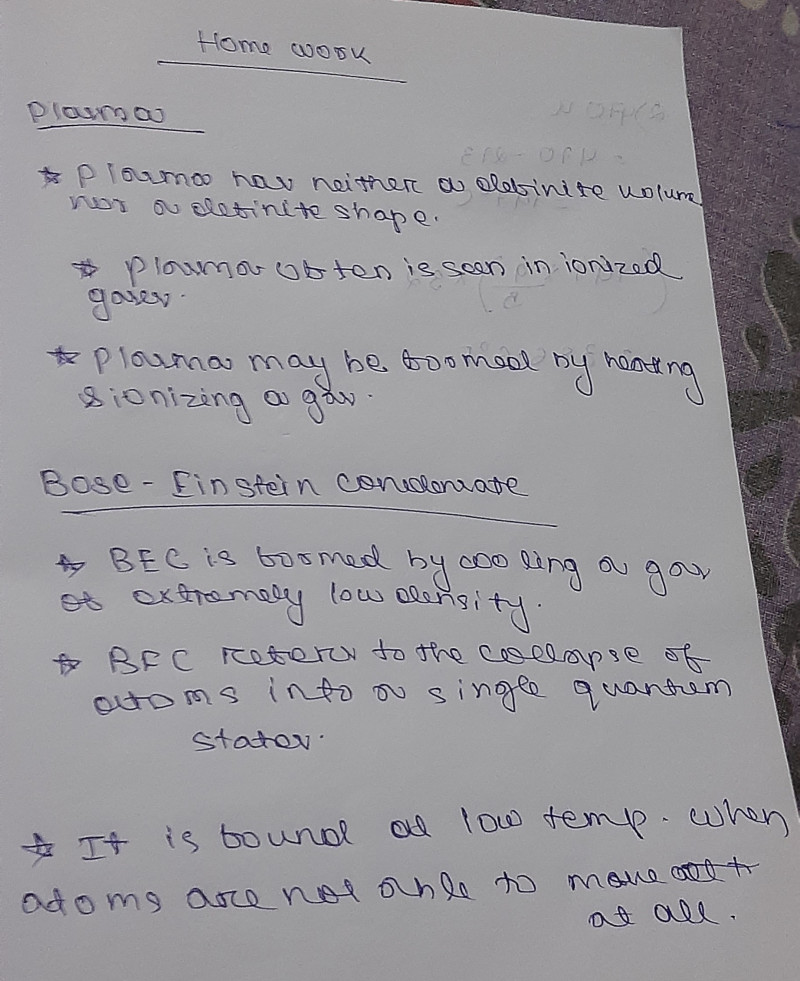 Home work
Plasma
* Plasma has neither a definite volume
nor a definite shape.
* Plasma often is seen in ionized
gases.
* Plasma may be formed by heating
& ionizing a gas.
Bose - Einstein condensate
* BEC is formed by cooling a gas
of extremely low density.
* BEC refers to the collapse of
atoms into a single quantum
states.
* It is found at low temp. when
atoms are not able to move
at all.